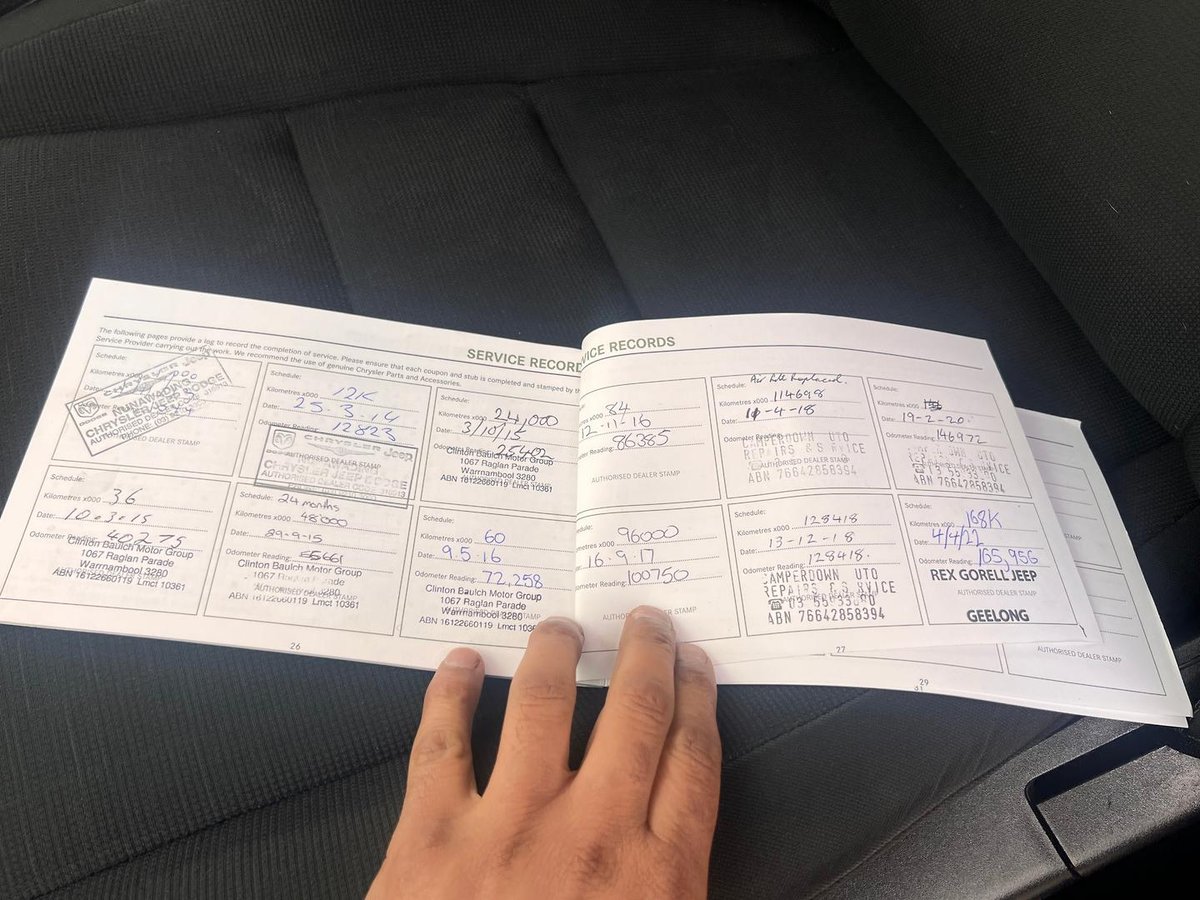 The following pages provide a log to record the completion of service. Please ensure that each coupon and stub is completed and stamped by the
Service Provider carrying out the work. We recommend the use of genuine Chrysler Parts and Accessories.
SERVICE RECORD
Schedule:
Kilometres x000
Date:
CHRYSLER Jeep
NUNAWADING
CHRYSLER JEEP DODGE
AUTHORISED DEALER
PHONE: (03)
AUTHORISED DEALER STAMP
Schedule:
Kilometres x000 12K
Date: 25.3.14
12823
CHRYSLER Jeep
AUTHORISED DEALER STAMP
CHRYSLER JEEP DODGE
Schedule:
Kilometres x000 24,000
Date: 3/10/15
Odometer Reading: 25402
Clinton Baulch Motor Group
1067 Raglan Parade
Warrnambool 3280
ABN 16122660119 Lmct 10361
Schedule:
Kilometres x000 36
Date: 10.3.15
Odometer Reading: 40275
Clinton Baulch Motor Group
1067 Raglan Parade
Warrnambool 3280
ABN 16122660119 Lmct 10361
Schedule: 24 months
Kilometres x000 48000
Date: 29-9-15
Odometer Reading:
Clinton Baulch Motor Group
1067 Raglan Parade
Warrnambool 3280
ABN 16122660119 Lmct 10361
Schedule:
Kilometres x000 60
Date: 9.5.16
Odometer Reading: 72,258
Clinton Baulch Motor Group
1067 Raglan Parade
Warrnambool 3280
ABN 16122660119 Lmct 103
26
VICE RECORDS
84
12-11-16
86385
AUTHORISED DEALER STAMP
Schedule: Air
Kilometres x000 114698
Date: -4-18
Odometer Reading:
CAMPERDOWN UTO
REPAIRS & S RVICE
ABN 76642858394
Schedule:
Kilometres x000
Date: 19-2-20
Odometer Reading: 146972
ABN 76642858394
96000
16.9.17
100750
AUTHORISED DEALER STAMP
Schedule:
Kilometres x000 128418
Date: 13-12-18
Odometer Reading: 128418.
CAMPERDOWN UTO
REPAIRS & S RVICE
ABN 76642858394
Schedule:
Kilometres x000 168K
Date: 4/4/22
Odometer Reading: 165,956
REX GORELL JEEP
AUTHORISED DEALER STAMP
GEELONG
27
AUTHORISED DEALER STAMP
AUTHORISED DEALER STAMP
29
31